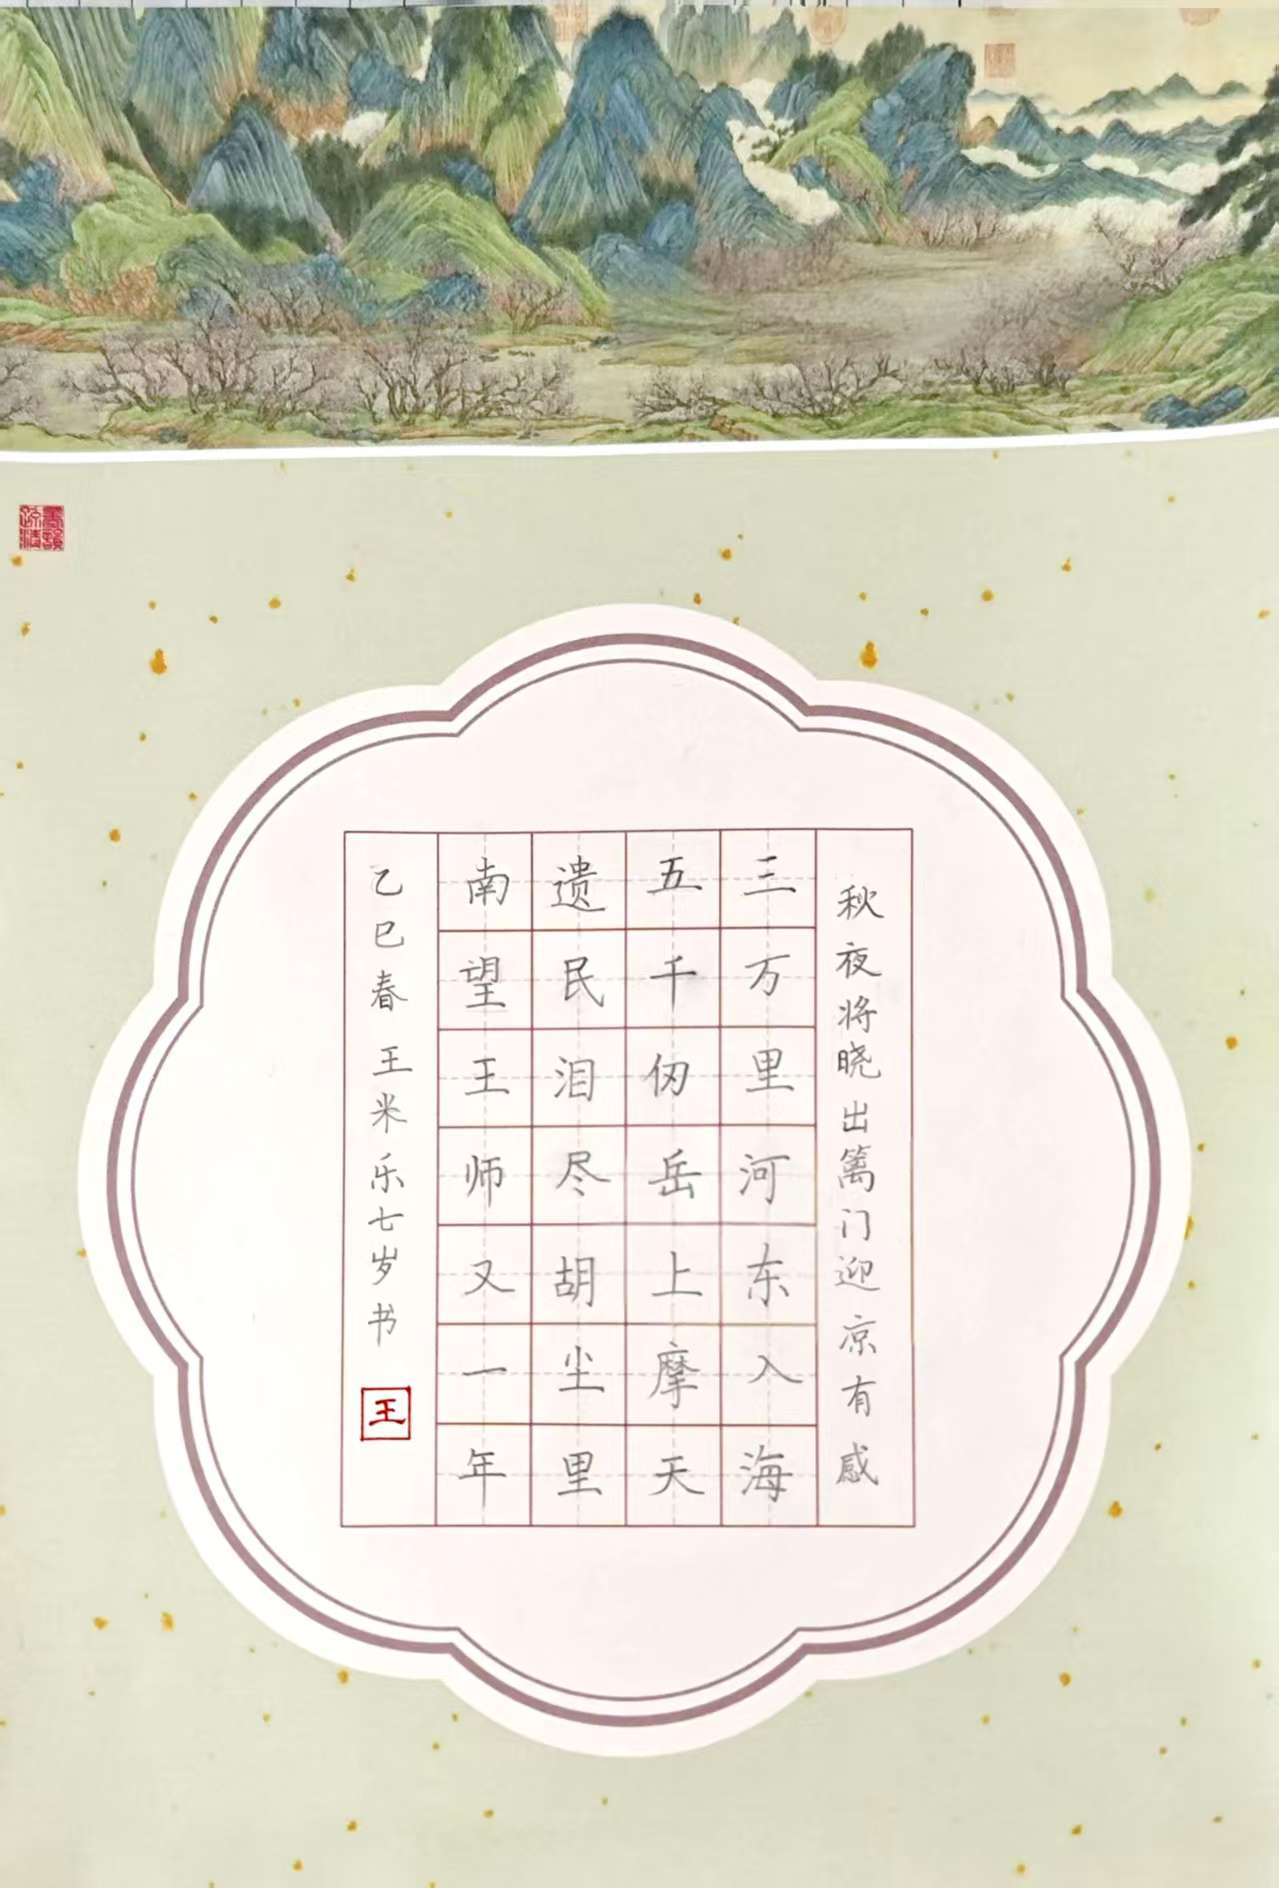 秋夜将晓出篱门迎凉有感
三万里河东入海
五千仞岳上摩天
遗民泪尽胡尘里
南望王师又一年
乙巳春 王米乐七岁书
王